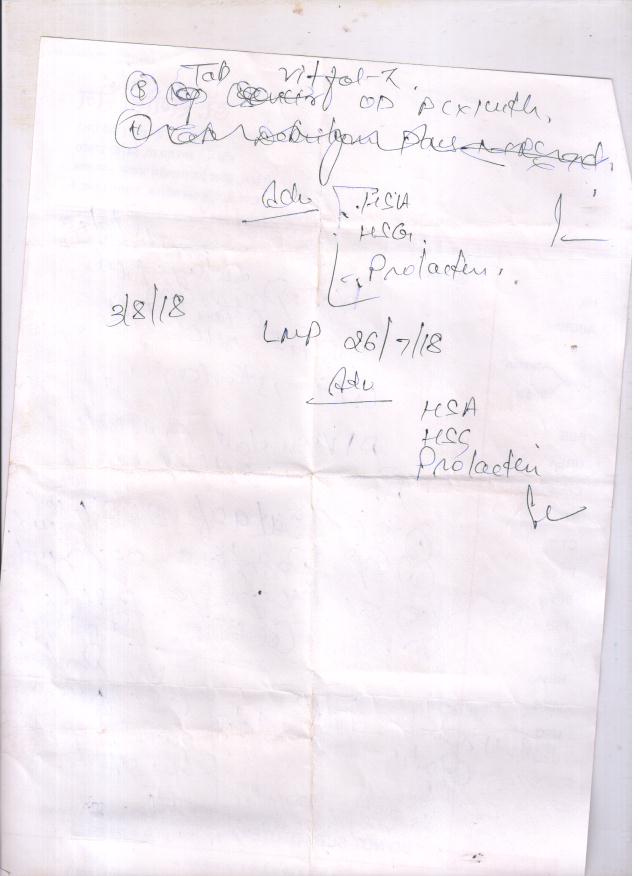 Tab vitfol-Z
③ OD pcx1mth.
④ Tab
Adv HSA
HSG.
Prolactin.
3/8/18
LMP 26/7/18
Adv
HSA
HSG
Prolactin